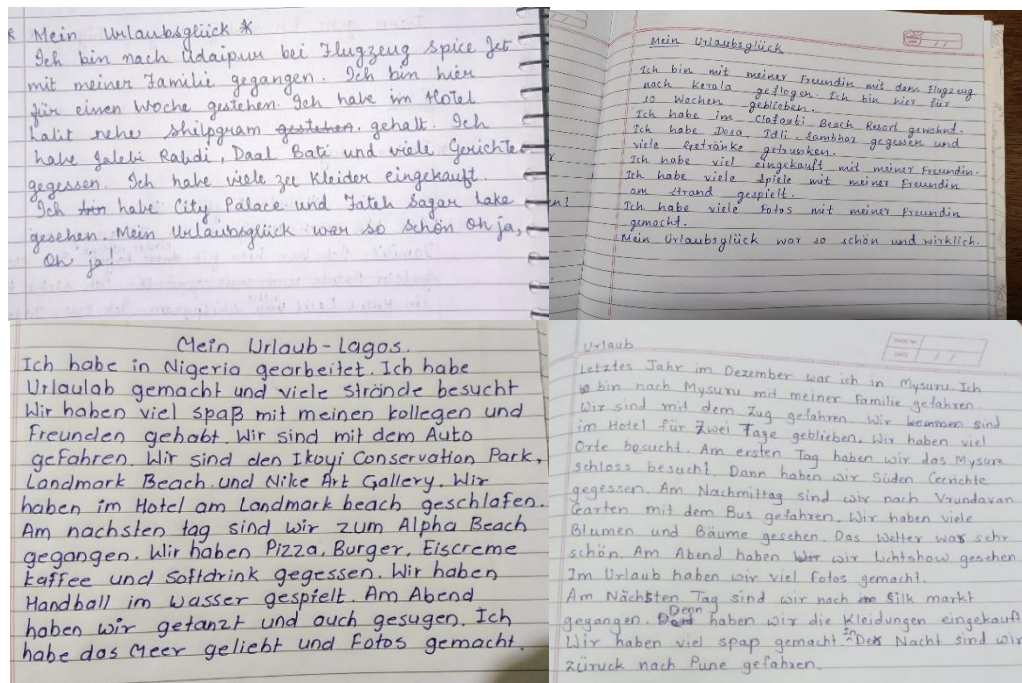 * Mein Urlaubsglück *
Ich bin nach Udaipur bei Flugzeug Spice Jet
mit meiner Familie gegangen. Ich bin hier
für einen Woche gestehen. Ich habe im Hotel
Lalit nehe Shilpgram gestehen. gehalt. Ich
habe Jalebi Rabdi, Daal Bati und viele Gerichte
gegessen. Ich habe viele zee Kleider eingekauft.
Ich bin habe City Palace und Fateh Sagar Lake
gesehen. Mein Urlaubsglück war so schön Oh ja,
Oh ja!
Mein Urlaubsglück
Ich bin mit meiner Freundin mit dem Flugzeug
nach Kerala geflogen. Ich bin hier für
10 Wochen geblieben.
Ich habe im Clafouti Beach Resort gewohnt.
Ich habe Dosa, Idli, Sambhar gegessen und
viele Getränke getrunken.
Ich habe viel eingekauft mit meiner Freundin.
Ich habe viele Spiele mit meiner Freundin
am Strand gespielt.
Ich habe viele Fotos mit meiner Freundin
gemacht.
Mein Urlaubsglück war so schön und wirklich.
Mein Urlaub - Lagos.
Ich habe in Nigeria gearbeitet. Ich habe
Urlaulab gemacht und viele Strände besucht
Wir haben viel spaß mit meinen kollegen und
Freunden gehabt. Wir sind mit dem Auto
gefahren. Wir sind den Ikoyi Conservation Park,
Landmark Beach und Nike Art Gallery. Wir
haben im Hotel am Landmark beach geschlafen.
Am nachsten tag sind wir zum Alpha Beach
gegangen. Wir haben Pizza, Burger, Eiscreme
kaffee und Softdrink gegessen. Wir haben
Handball im wasser gespielt. Am Abend
haben wir getanzt und auch gesugen. Ich
habe das Meer geliebt und Fotos gemacht.
Urlaub
Letztes Jahr im Dezember war ich in Mysuru. Ich
bin nach Mysuru mit meiner Familie gefahren.
Wir sind mit dem Zug gefahren. Wir kommen sind
im Hotel für Zwei Tage geblieben. Wir haben viel
Orte besucht. Am ersten Tag haben wir das Mysure
schloss besucht. Dann haben wir Süden Gerichte
gegessen. Am Nachmittag sind wir nach Vrundavan
Garten mit dem Bus gefahren. Wir haben viele
Blumen und Bäume gesehen. Das Wetter war sehr
schön. Am Abend haben wir wir Lichtshow gesehen
Im Urlaub haben wir viel Fotos gemacht.
Am Nächsten Tag sind wir nach im Silk markt
gegangen. Denn haben wir die Kleidungen eingekauft
Wir haben viel spap gemacht. In Der Nacht sind wir
züruck nach Pune gefahren.